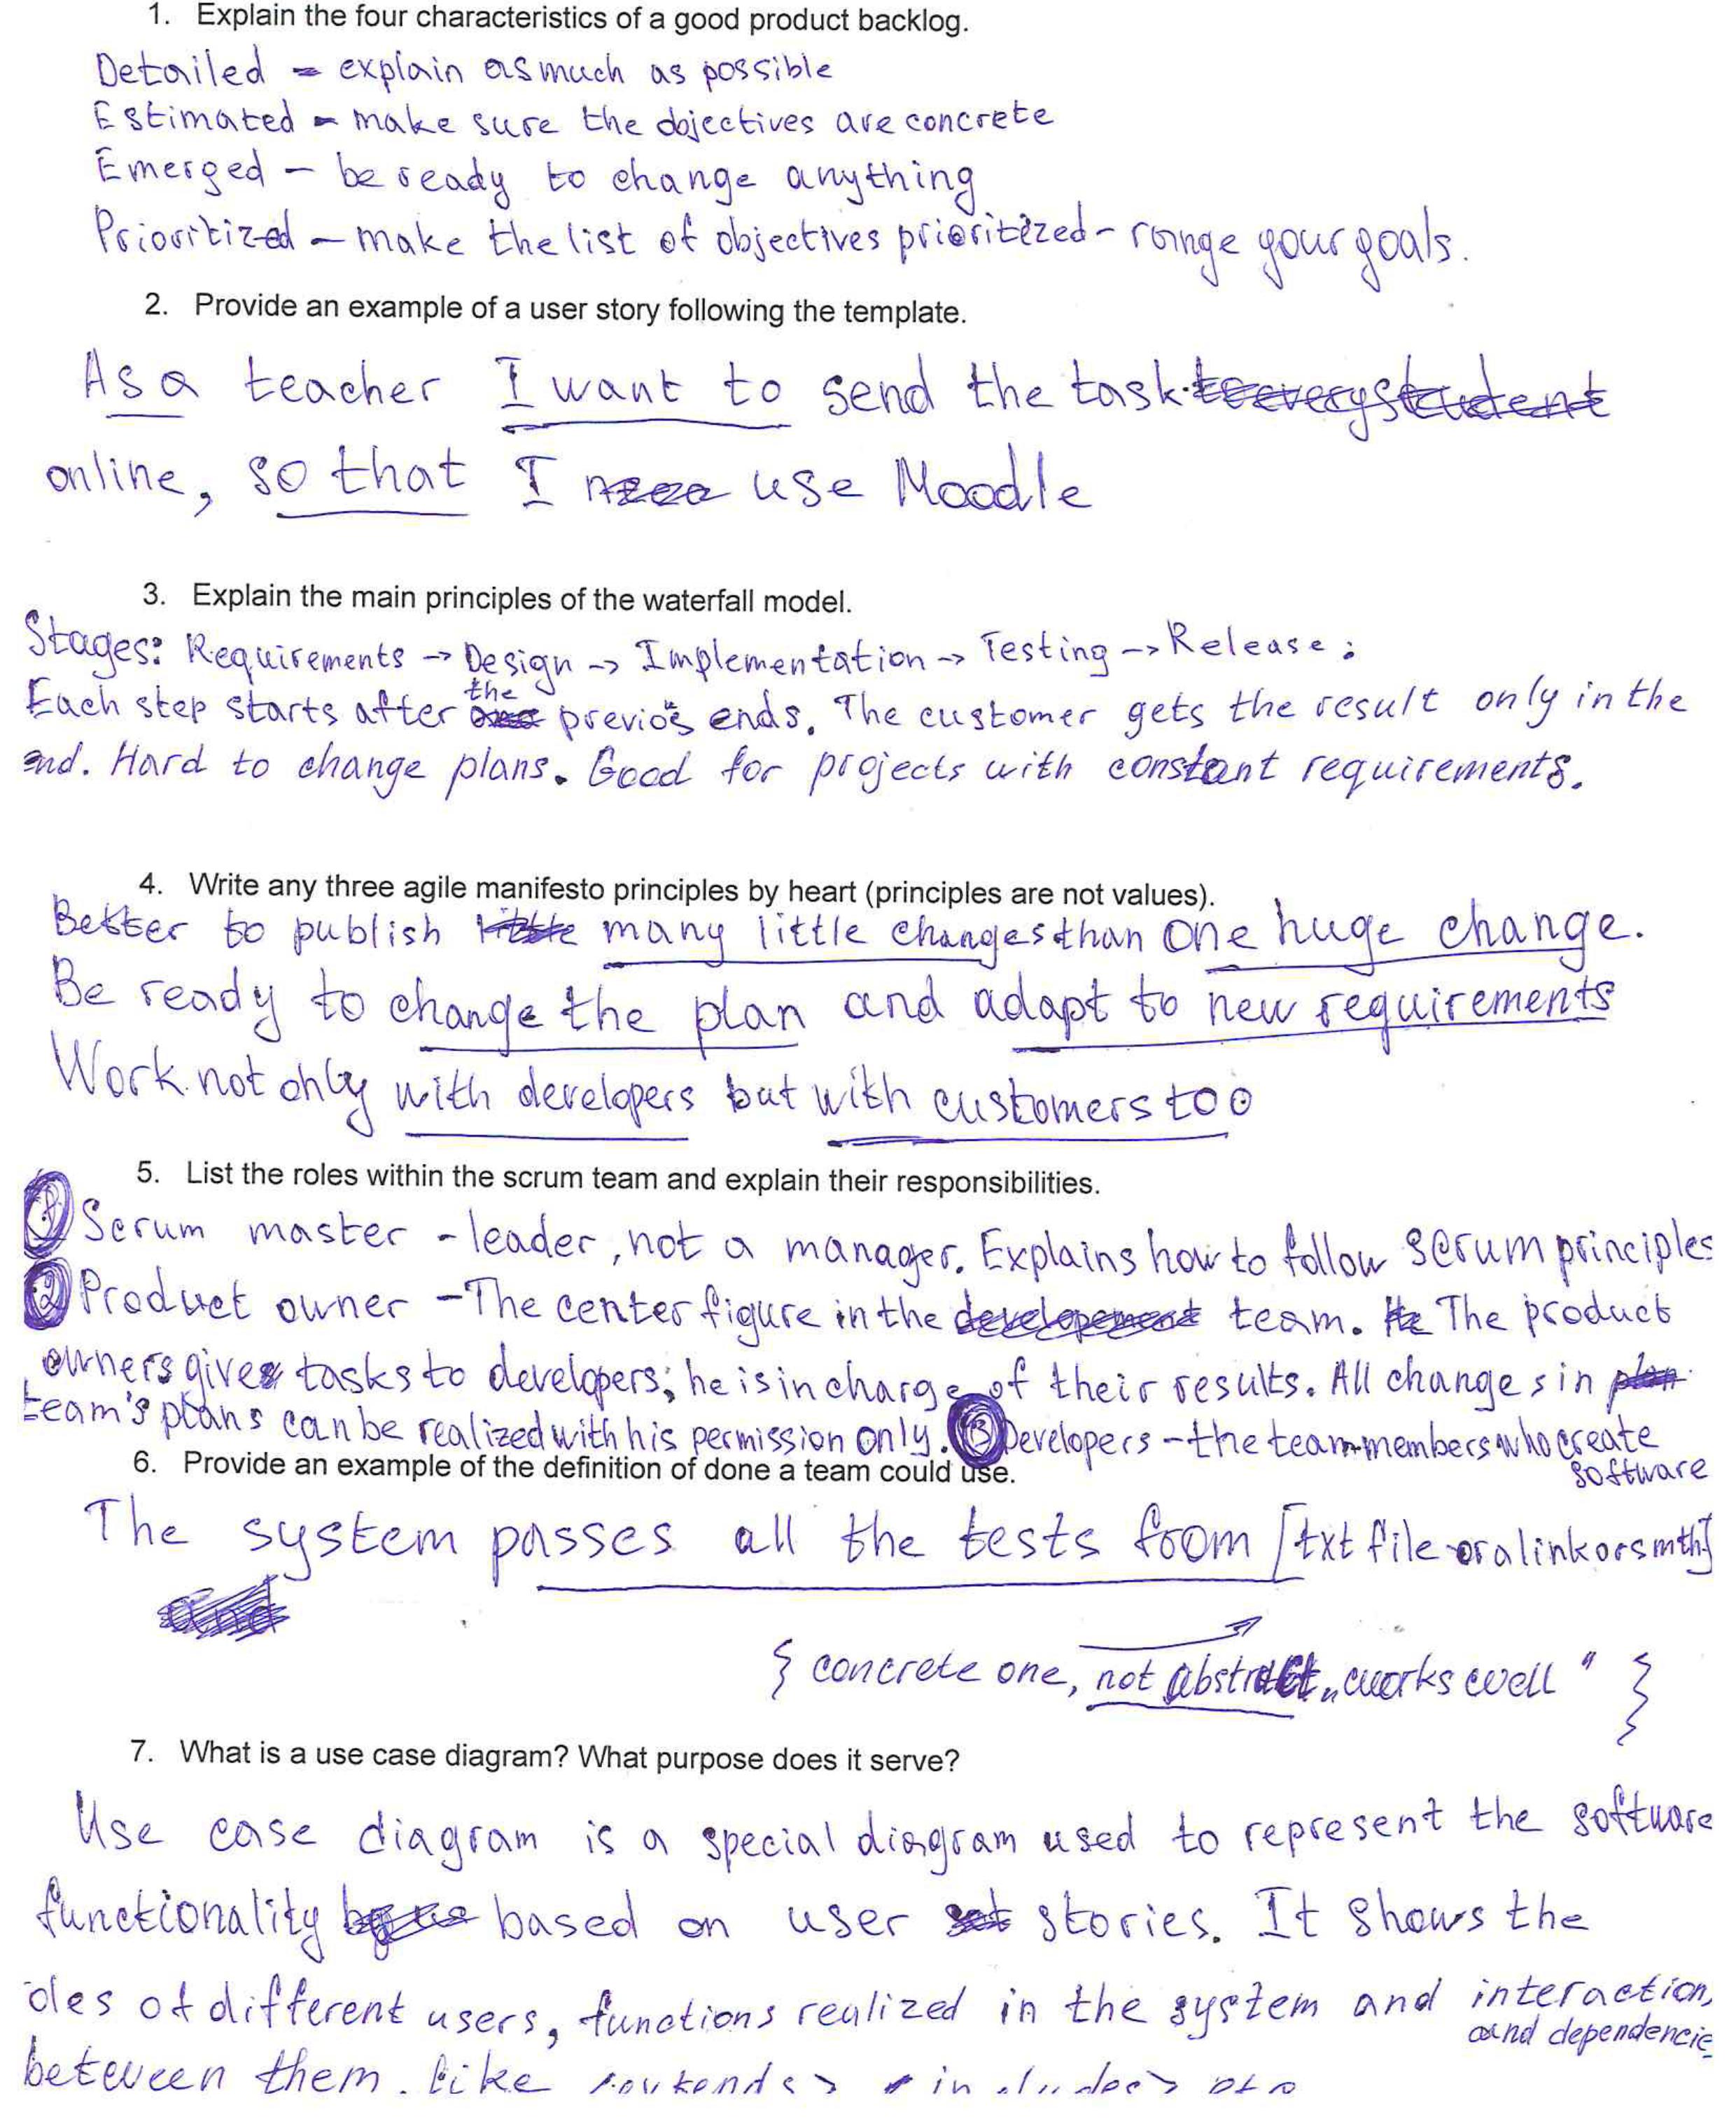 1. Explain the four characteristics of a good product backlog.
Detailed - explain as much as possible
Estimated - make sure the objectives are concrete
Emerged - be ready to change anything
Prioritized - make the list of objectives prioritized - range your goals.
2. Provide an example of a user story following the template.
As a teacher I want to send the task to every student
online, so that I use Moodle
3. Explain the main principles of the waterfall model.
Stages: Requirements -> Design -> Implementation -> Testing -> Release;
Each step starts after the previos ends. The customer gets the result only in the
end. Hard to change plans. Good for projects with constant requirements.
4. Write any three agile manifesto principles by heart (principles are not values).
Better to publish little many little changes than one huge change.
Be ready to change the plan and adapt to new requirements
Work not only with developers but with customers too
5. List the roles within the scrum team and explain their responsibilities.
1 Scrum master - leader, not a manager. Explains how to follow scrum principles
2 Product owner - The center figure in the developement team. He The product
owners gives tasks to developers; he is in charge of their results. All changes in plan
team's plans can be realized with his permission only. 3 Developers - the team members who create
software
6. Provide an example of the definition of done a team could use.
The system passes all the tests from [txt file or a link or smth]
and
{ concrete one, not abstract „works well" }
7. What is a use case diagram? What purpose does it serve?
Use case diagram is a special diagram used to represent the software
functionality based on user stories. It shows the
oles of different users, functions realized in the system and interaction,
and dependencie
between them. like